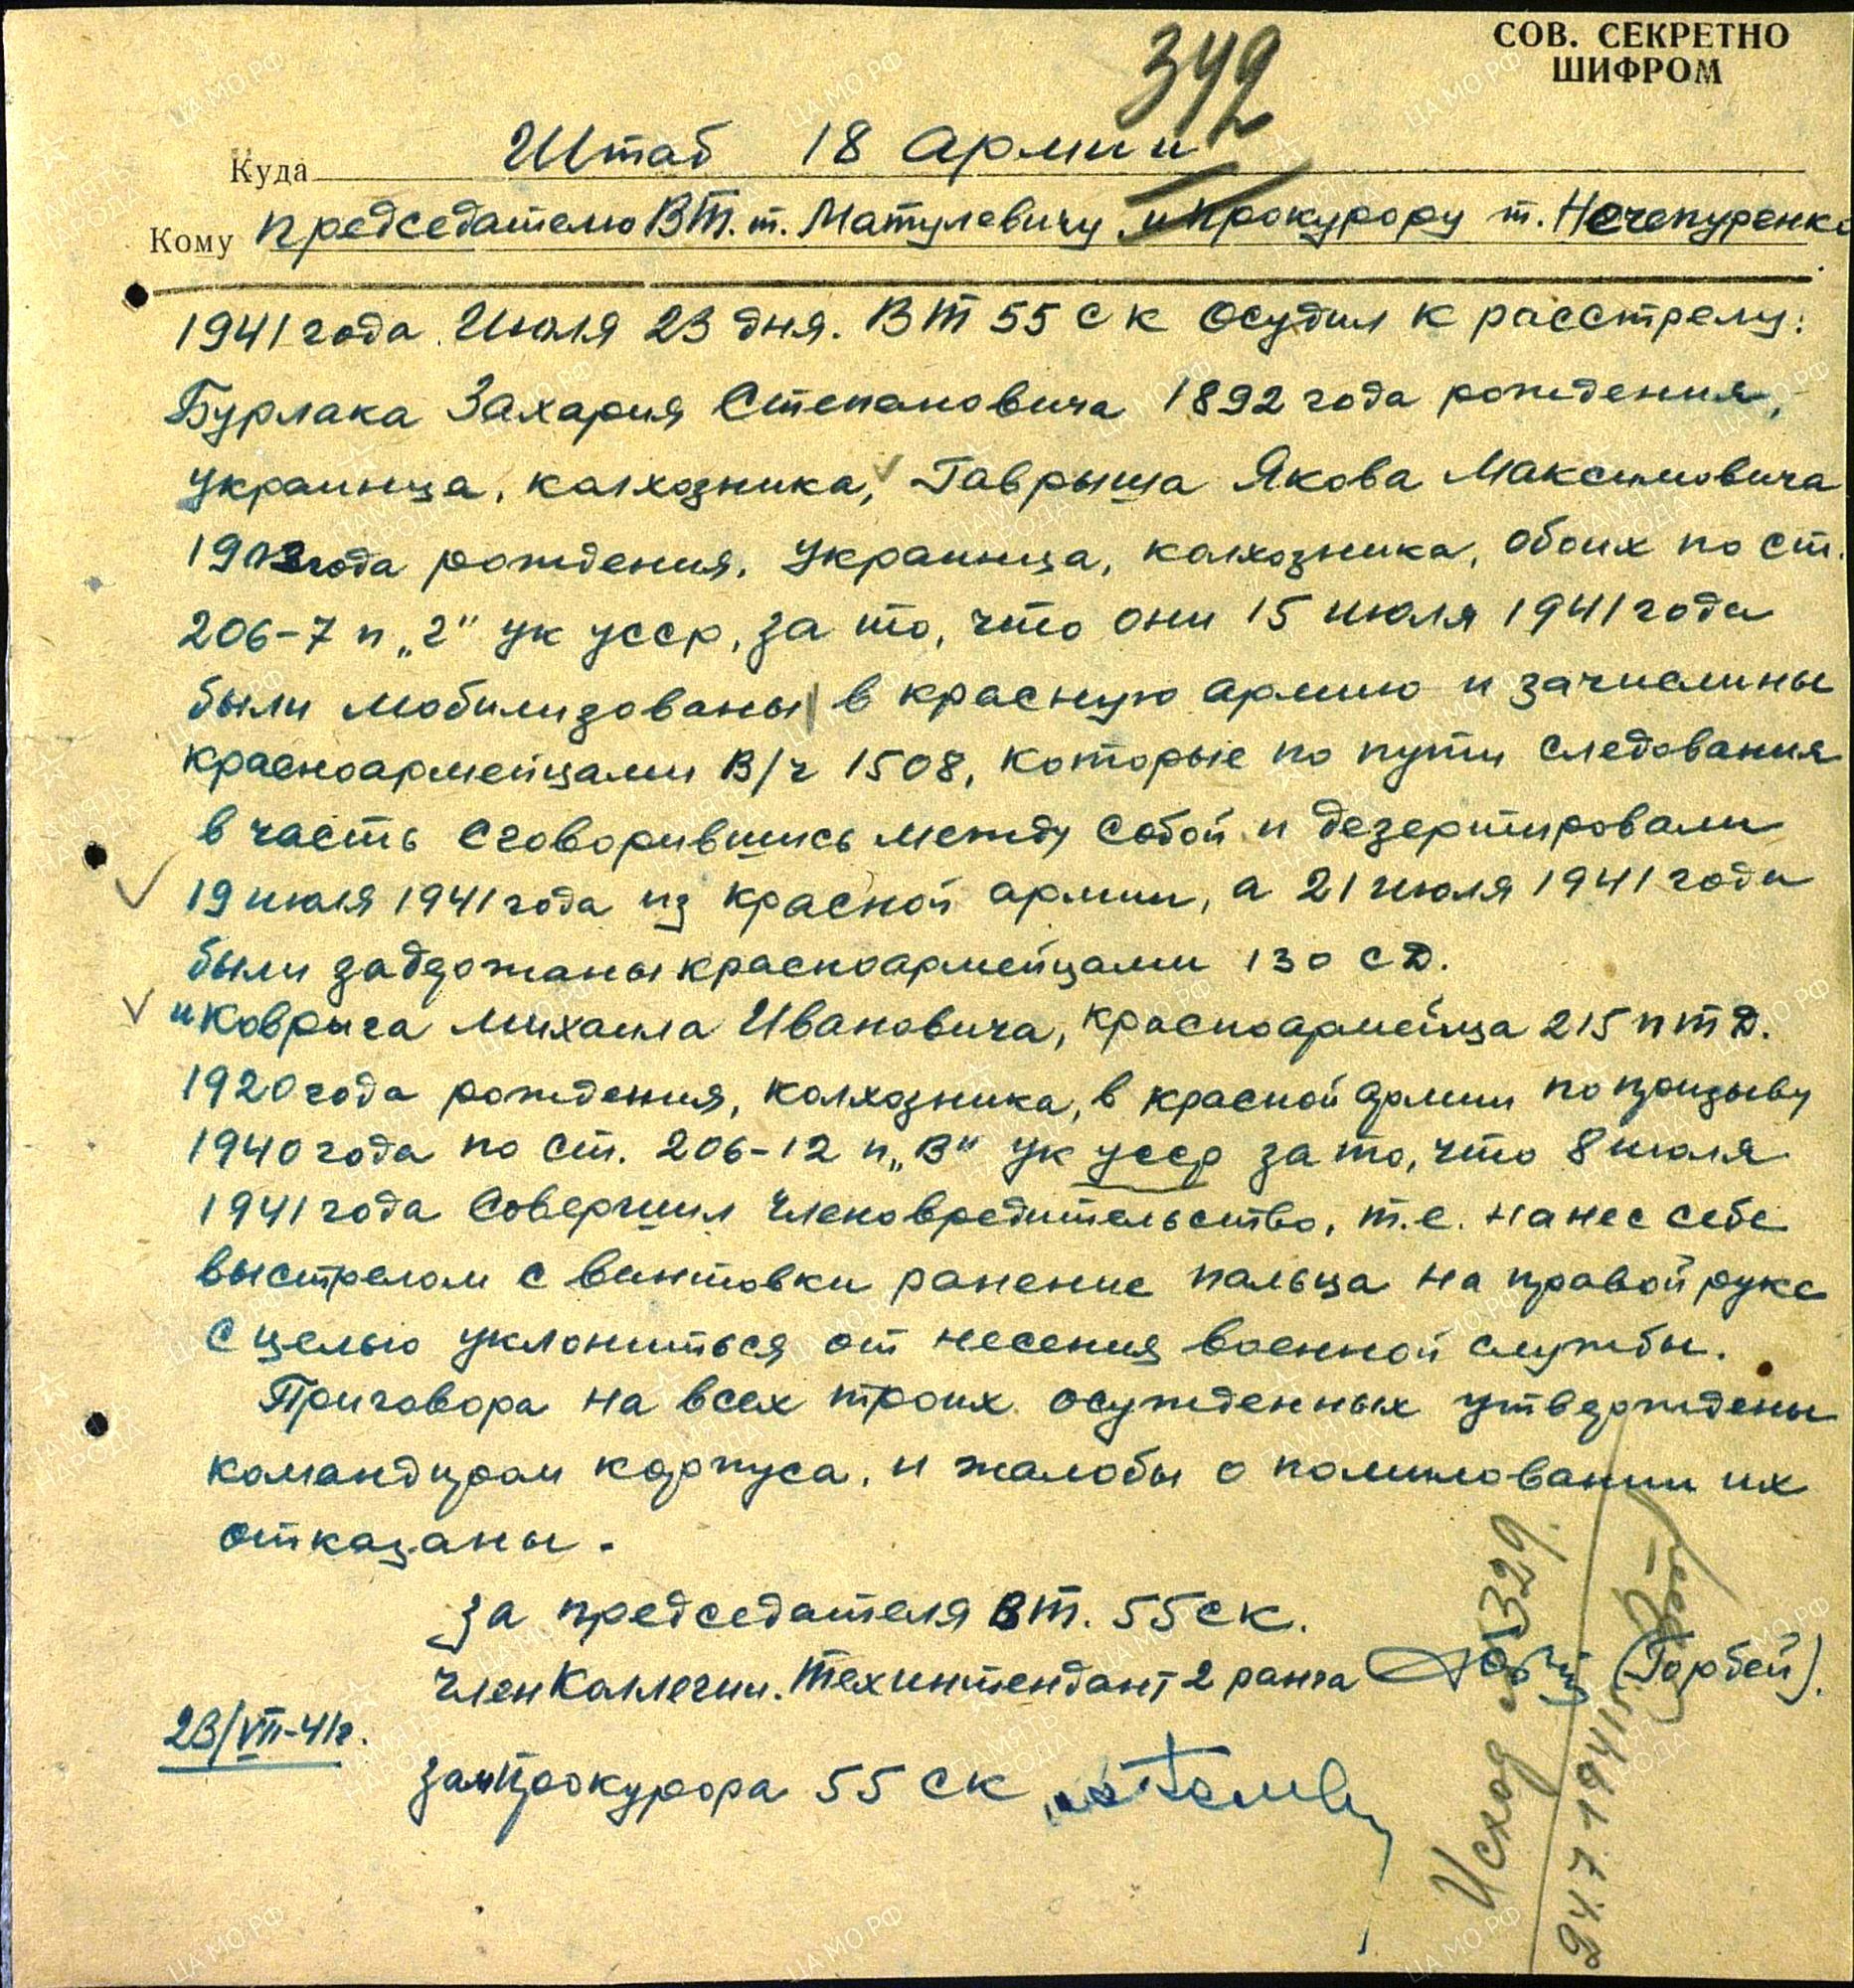 СОВ. СЕКРЕТНО
ШИФРОМ
342
Куда Штаб 18 Армии
Кому председателю ВТ. т. Матулевичу и прокурору т. Нечепуренко
1941 года. Июля 23 дня. ВТ 55 СК осудил к расстрелу:
Бурлака Захария Степановича 1892 года рождения,
украинца, колхозника, Гаврыша Якова Максимовича
1903 года рождения, украинца, колхозника, обоих по ст.
206-7 п „г" УК УССР, за то, что они 15 июля 1941 года
были мобилизованы в красную армию и зачислины
красноармейцами В/ч 1508, которые по пути следования
в часть сговорившись между собой и дезертировали
19 июля 1941 года из красной армии, а 21 июля 1941 года
были задержаны красноармейцами 130 СД.
и Коврыга Михаила Ивановича, красноармейца 215 птд.
1920 года рождения, колхозника, в красной армии по призыву
1940 года по ст. 206-12 п „В" УК УССР за то, что 8 июля
1941 года совершил членовредительство, т.е. нанес себе
выстрелом с винтовки ранение пальца на правой руке
с целью уклониться от несения военной службы.
Приговора на всех троих осужденных утверждены
командиром корпуса, и жалобы о помиловании их
отказаны.
За председателя ВТ. 55 СК.
член Коллегии. Техинтендант 2 ранга (Горбей).
23/VII-41г.
зампрокурора 55 СК
Исход № 1329.
24.7.1941г.